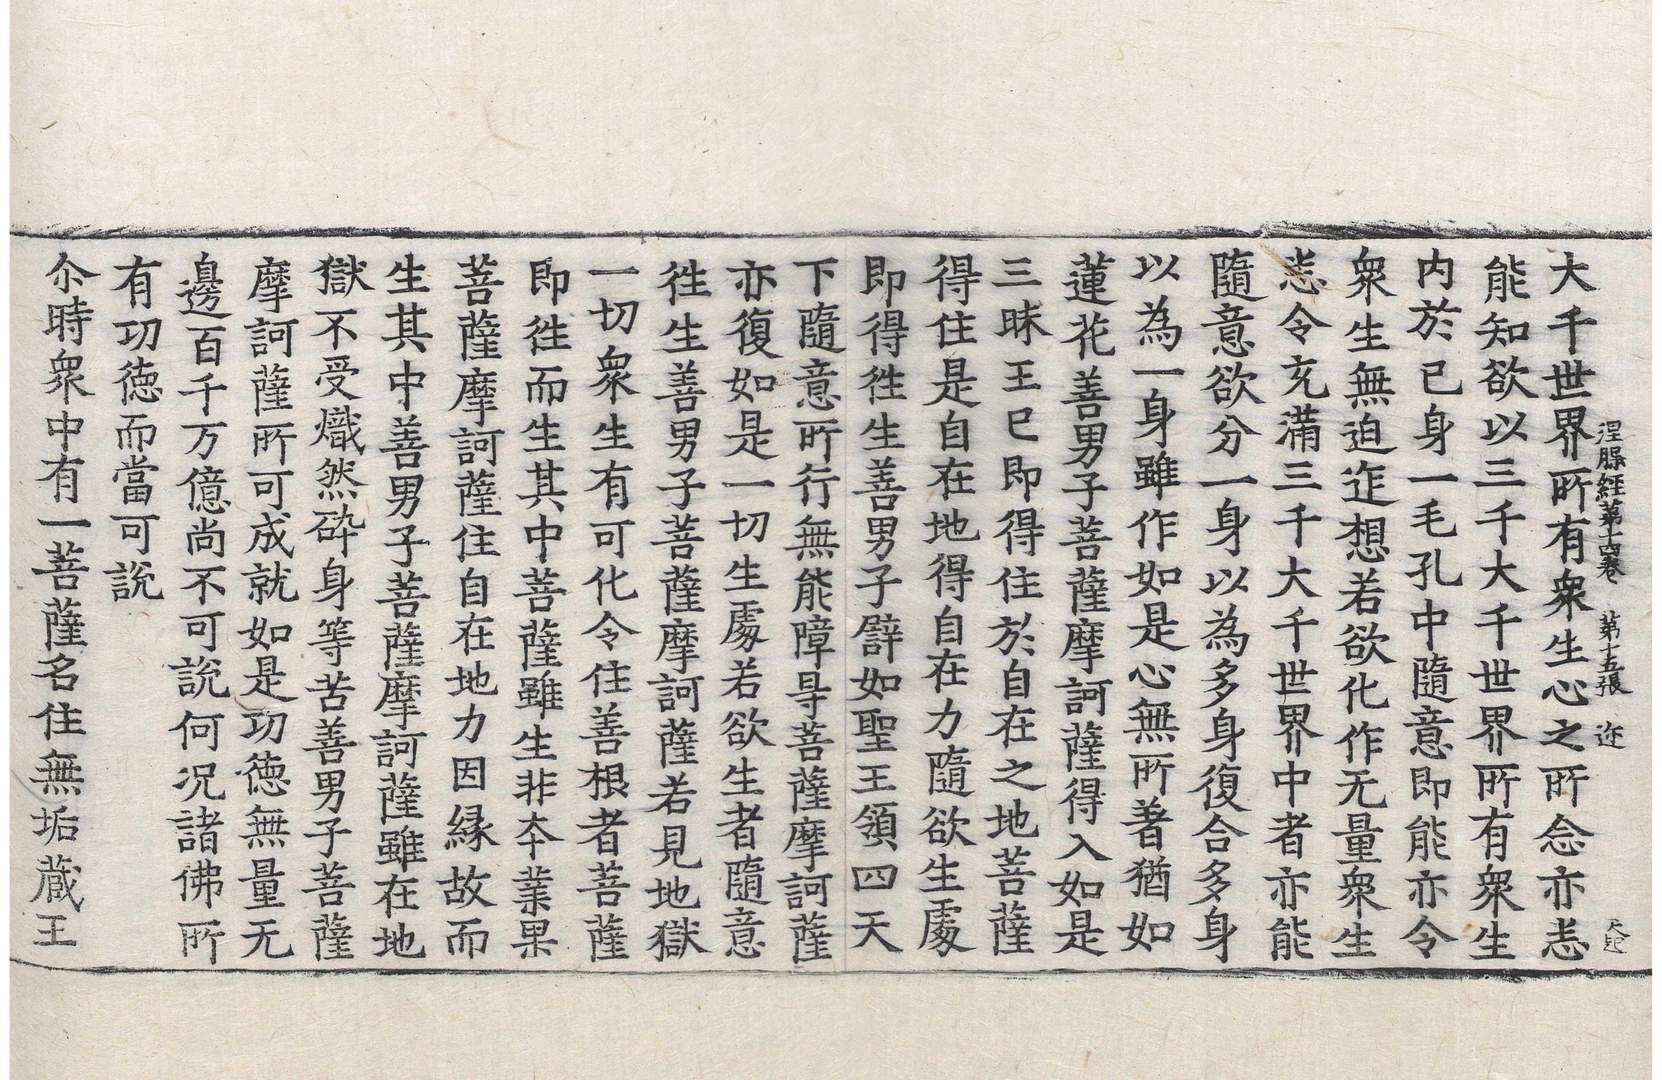 涅槃經第十四卷 第十五張 迩
大千世界所有衆生心之所念亦悉
能知欲以三千大千世界所有衆生
内於已身一毛孔中隨意即能亦令
衆生無迫迮想若欲化作无量衆生
悉令充滿三千大千世界中者亦能
隨意欲分一身以為多身復合多身
以為一身雖作如是心無所著猶如
蓮花善男子菩薩摩訶薩得入如是
三昧王已即得住於自在之地菩薩
得住是自在地得自在力隨欲生處
即得徃生善男子譬如聖王領四天
下隨意所行無能障㝵菩薩摩訶薩
亦復如是一切生處若欲生者隨意
徃生善男子菩薩摩訶薩若見地獄
一切衆生有可化令住善根者菩薩
即徃而生其中菩薩雖生非夲業果
菩薩摩訶薩住自在地力因縁故而
生其中善男子菩薩摩訶薩雖在地
獄不受熾然碎身等苦善男子菩薩
摩訶薩所可成就如是功徳無量无
邊百千万億尚不可説何况諸佛所
有功徳而當可説
尒時衆中有一菩薩名住無垢蔵王